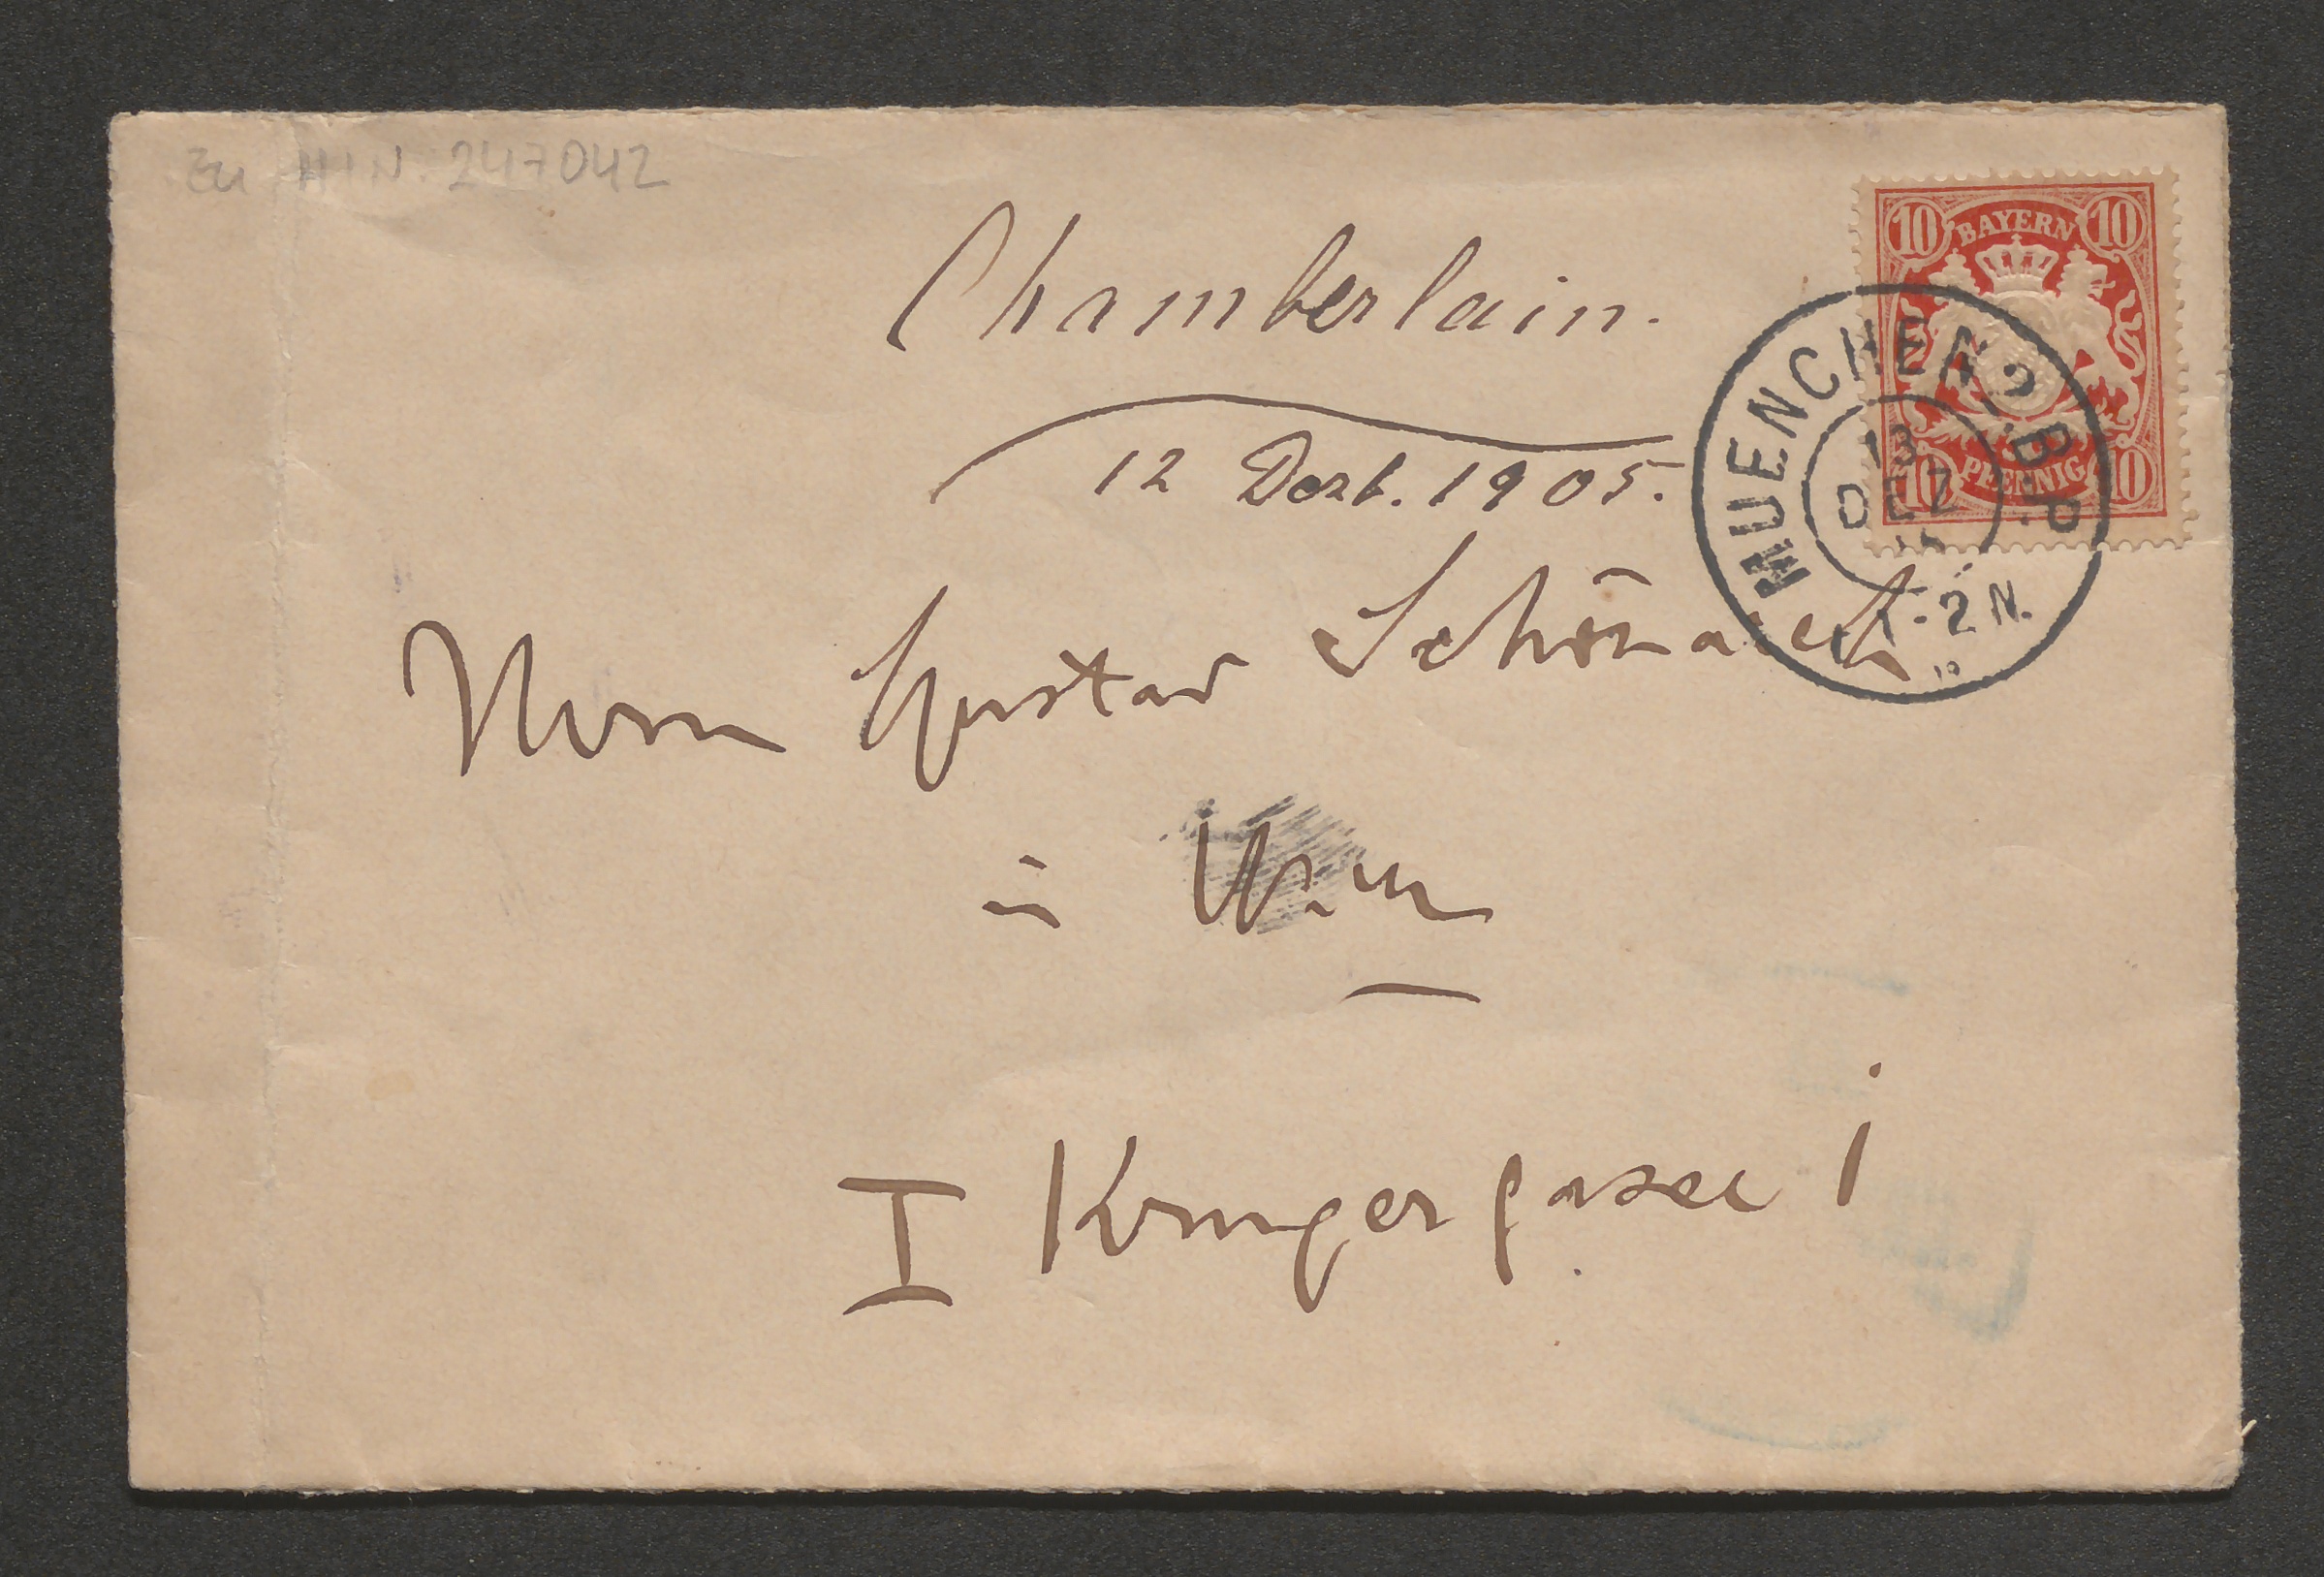 Zu H.I.N. 247042
Chamberlain.
12 Dezb. 1905.
10 BAYERN 10
10 PFENNIG 10
MUENCHEN 2. B.P.
13
DEZ
1-2 N.
Herrn Gustav Schönaich
in Wien
I Krugergasse 1